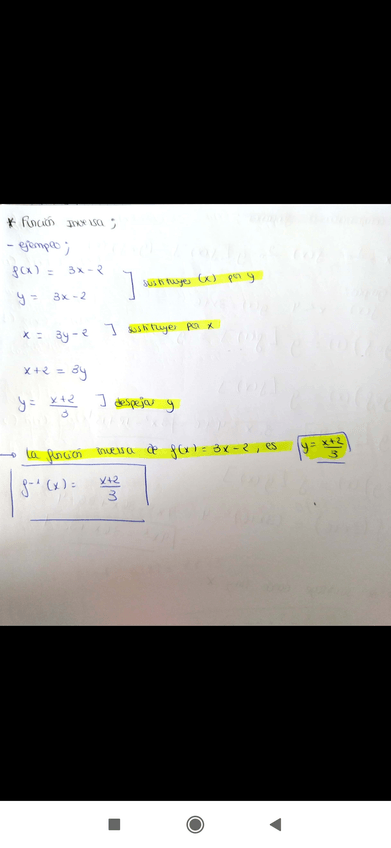 * Función inversa;
- ejemplo;
f(x) = 3x - 2
y = 3x - 2 ] sustituyes (x) por y
x = 3y - 2 ] sustituyes por x
x+2 = 3y
y = x+2/3 ] despejar y
→ La función inversa de f(x) = 3x - 2, es y = x+2/3
f⁻¹(x) = x+2/3